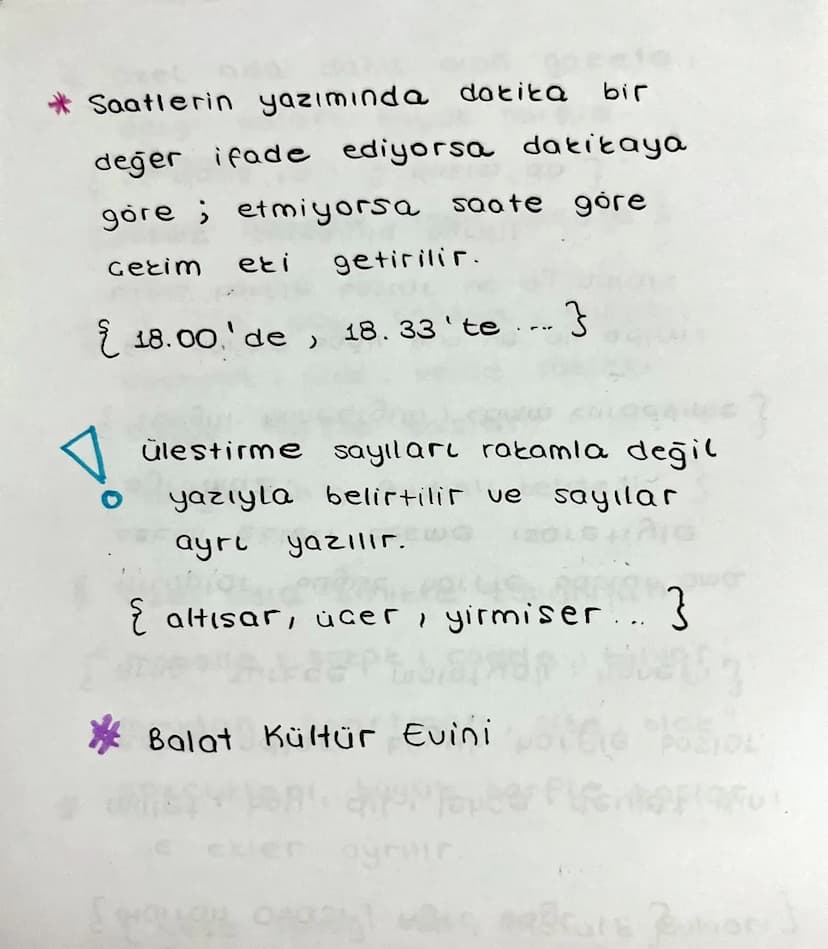 * Saatlerin yazımında dakika bir
değer ifade ediyorsa dakikaya
göre ; etmiyorsa saate göre
cekim eki getirilir.
{ 18.00.'de , 18.33'te .... }
! ülestirme sayıları rakamla değil
yazıyla belirtilir ve sayılar
ayrı yazılır.
{ altısar, ücer , yirmiser... }
* Balat Kültür Evini